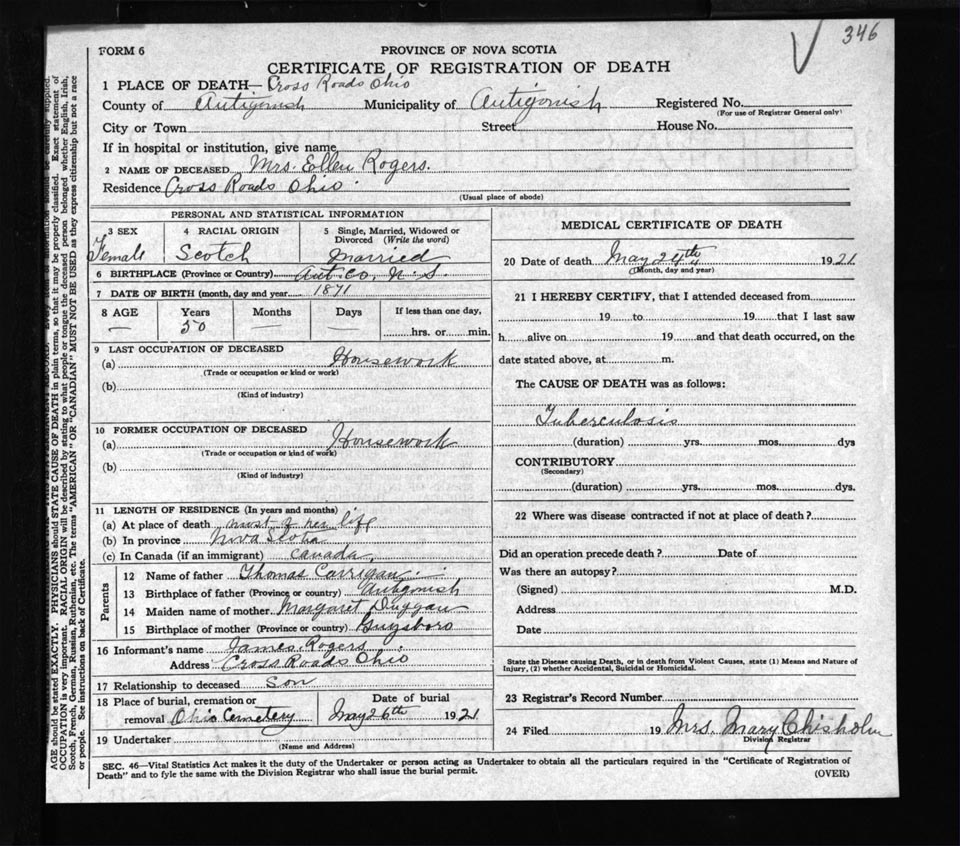 346
FORM 6
PROVINCE OF NOVA SCOTIA
CERTIFICATE OF REGISTRATION OF DEATH
1 PLACE OF DEATH— Cross Roads Ohio
County of Antigonish Municipality of Antigonish Registered No.
(For use of Registrar General only)
City or Town Street House No.
If in hospital or institution, give name
2 NAME OF DECEASED Mrs. Ellen Rogers.
Residence Cross Roads Ohio
(Usual place of abode)
PERSONAL AND STATISTICAL INFORMATION
3 SEX 4 RACIAL ORIGIN 5 Single, Married, Widowed or Divorced (Write the word)
Female Scotch Married
6 BIRTHPLACE (Province or Country) Ant. Co. N. S.
7 DATE OF BIRTH (month, day and year 1871
8 AGE Years Months Days If less than one day,
— 50 — — hrs. or min.
9 LAST OCCUPATION OF DECEASED
(a) Housework
(Trade or occupation or kind or work)
(b)
(Kind of industry)
10 FORMER OCCUPATION OF DECEASED
(a) Housework
(Trade or occupation or kind of work)
(b)
(Kind of industry)
11 LENGTH OF RESIDENCE (In years and months)
(a) At place of death most of her life
(b) In province Nova Scotia
(c) In Canada (if an immigrant) Canada
Parents
12 Name of father Thomas Carrigan
13 Birthplace of father (Province or country) Antigonish
14 Maiden name of mother Margaret Duggan
15 Birthplace of mother (Province or country) Guysboro
16 Informant's name James Rogers
Address Cross Roads Ohio
17 Relationship to deceased Son
18 Place of burial, cremation or removal Ohio Cemetery Date of burial May 26th 1921
19 Undertaker
(Name and Address)
MEDICAL CERTIFICATE OF DEATH
20 Date of death May 24th 1921
(Month, day and year)
21 I HEREBY CERTIFY, that I attended deceased from
19 to 19 that I last saw
h alive on 19 and that death occurred, on the
date stated above, at m.
The CAUSE OF DEATH was as follows:
Tuberculosis
(duration) yrs. mos. dys
CONTRIBUTORY
(Secondary)
(duration) yrs. mos. dys.
22 Where was disease contracted if not at place of death?
Did an operation precede death? Date of
Was there an autopsy?
(Signed) M.D.
Address
Date
State the Disease causing Death, or in death from Violent Causes, state (1) Means and Nature of
Injury, (2) whether Accidental, Suicidal or Homicidal.
23 Registrar's Record Number
24 Filed 19 Mrs. Mary Chisholm
Division Registrar
SEC. 46—Vital Statistics Act makes it the duty of the Undertaker or person acting as Undertaker to obtain all the particulars required in the "Certificate of Registration of
Death" and to fyle the same with the Division Registrar who shall issue the burial permit.
(OVER)
AGE should be stated EXACTLY. PHYSICIANS should STATE CAUSE OF DEATH in plain terms, so that it may be properly classified. Exact statement of
OCCUPATION is very important. RACIAL ORIGIN will be described by stating to what people or tongue the deceased person belonged whether English, Irish,
Scotch, French, German, Russian, Ruthenian, etc. The terms "AMERICAN" OR "CANADIAN" MUST NOT BE USED as they express citizenship but not a race
or people. See instructions on back of Certificate.